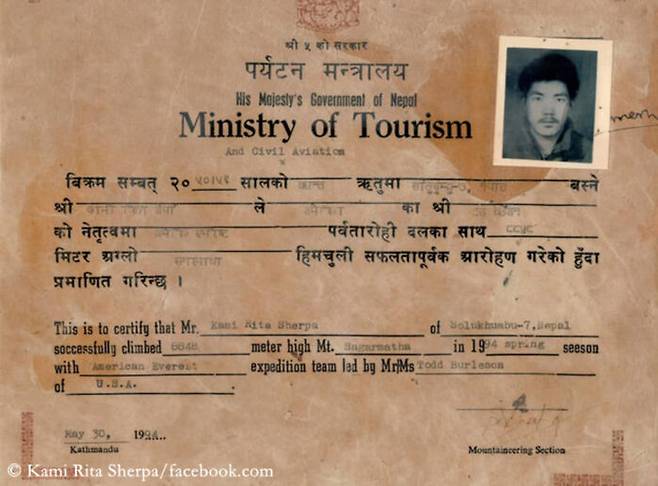 श्री ५ को सरकार
पर्यटन मन्त्रालय
His Majesty's Government of Nepal
Ministry of Tourism
And Civil Aviation
बिक्रम सम्बत् २० ५०/५१ सालको ऋतुमा बस्ने
श्री ले का श्री
को नेतृत्वमा पर्वतारोही दलका साथ ८८४८
मिटर अग्लो सगरमाथा हिमचुली सफलतापूर्वक आरोहण गरेको हुँदा
प्रमाणित गरिन्छ ।
This is to certify that Mr. Kami Rita Sherpa of Solukhumbu-7,Nepal
soccessfully climbed 8848 meter high Mt. Sagarmatha in 1994 spring seeson
with American Everest expedition team led by Mr/Ms Todd Burleson
of U.S.A.
May 30, 1994..
Kathmandu
Mountaineering Section
© Kami Rita Sherpa/facebook.com